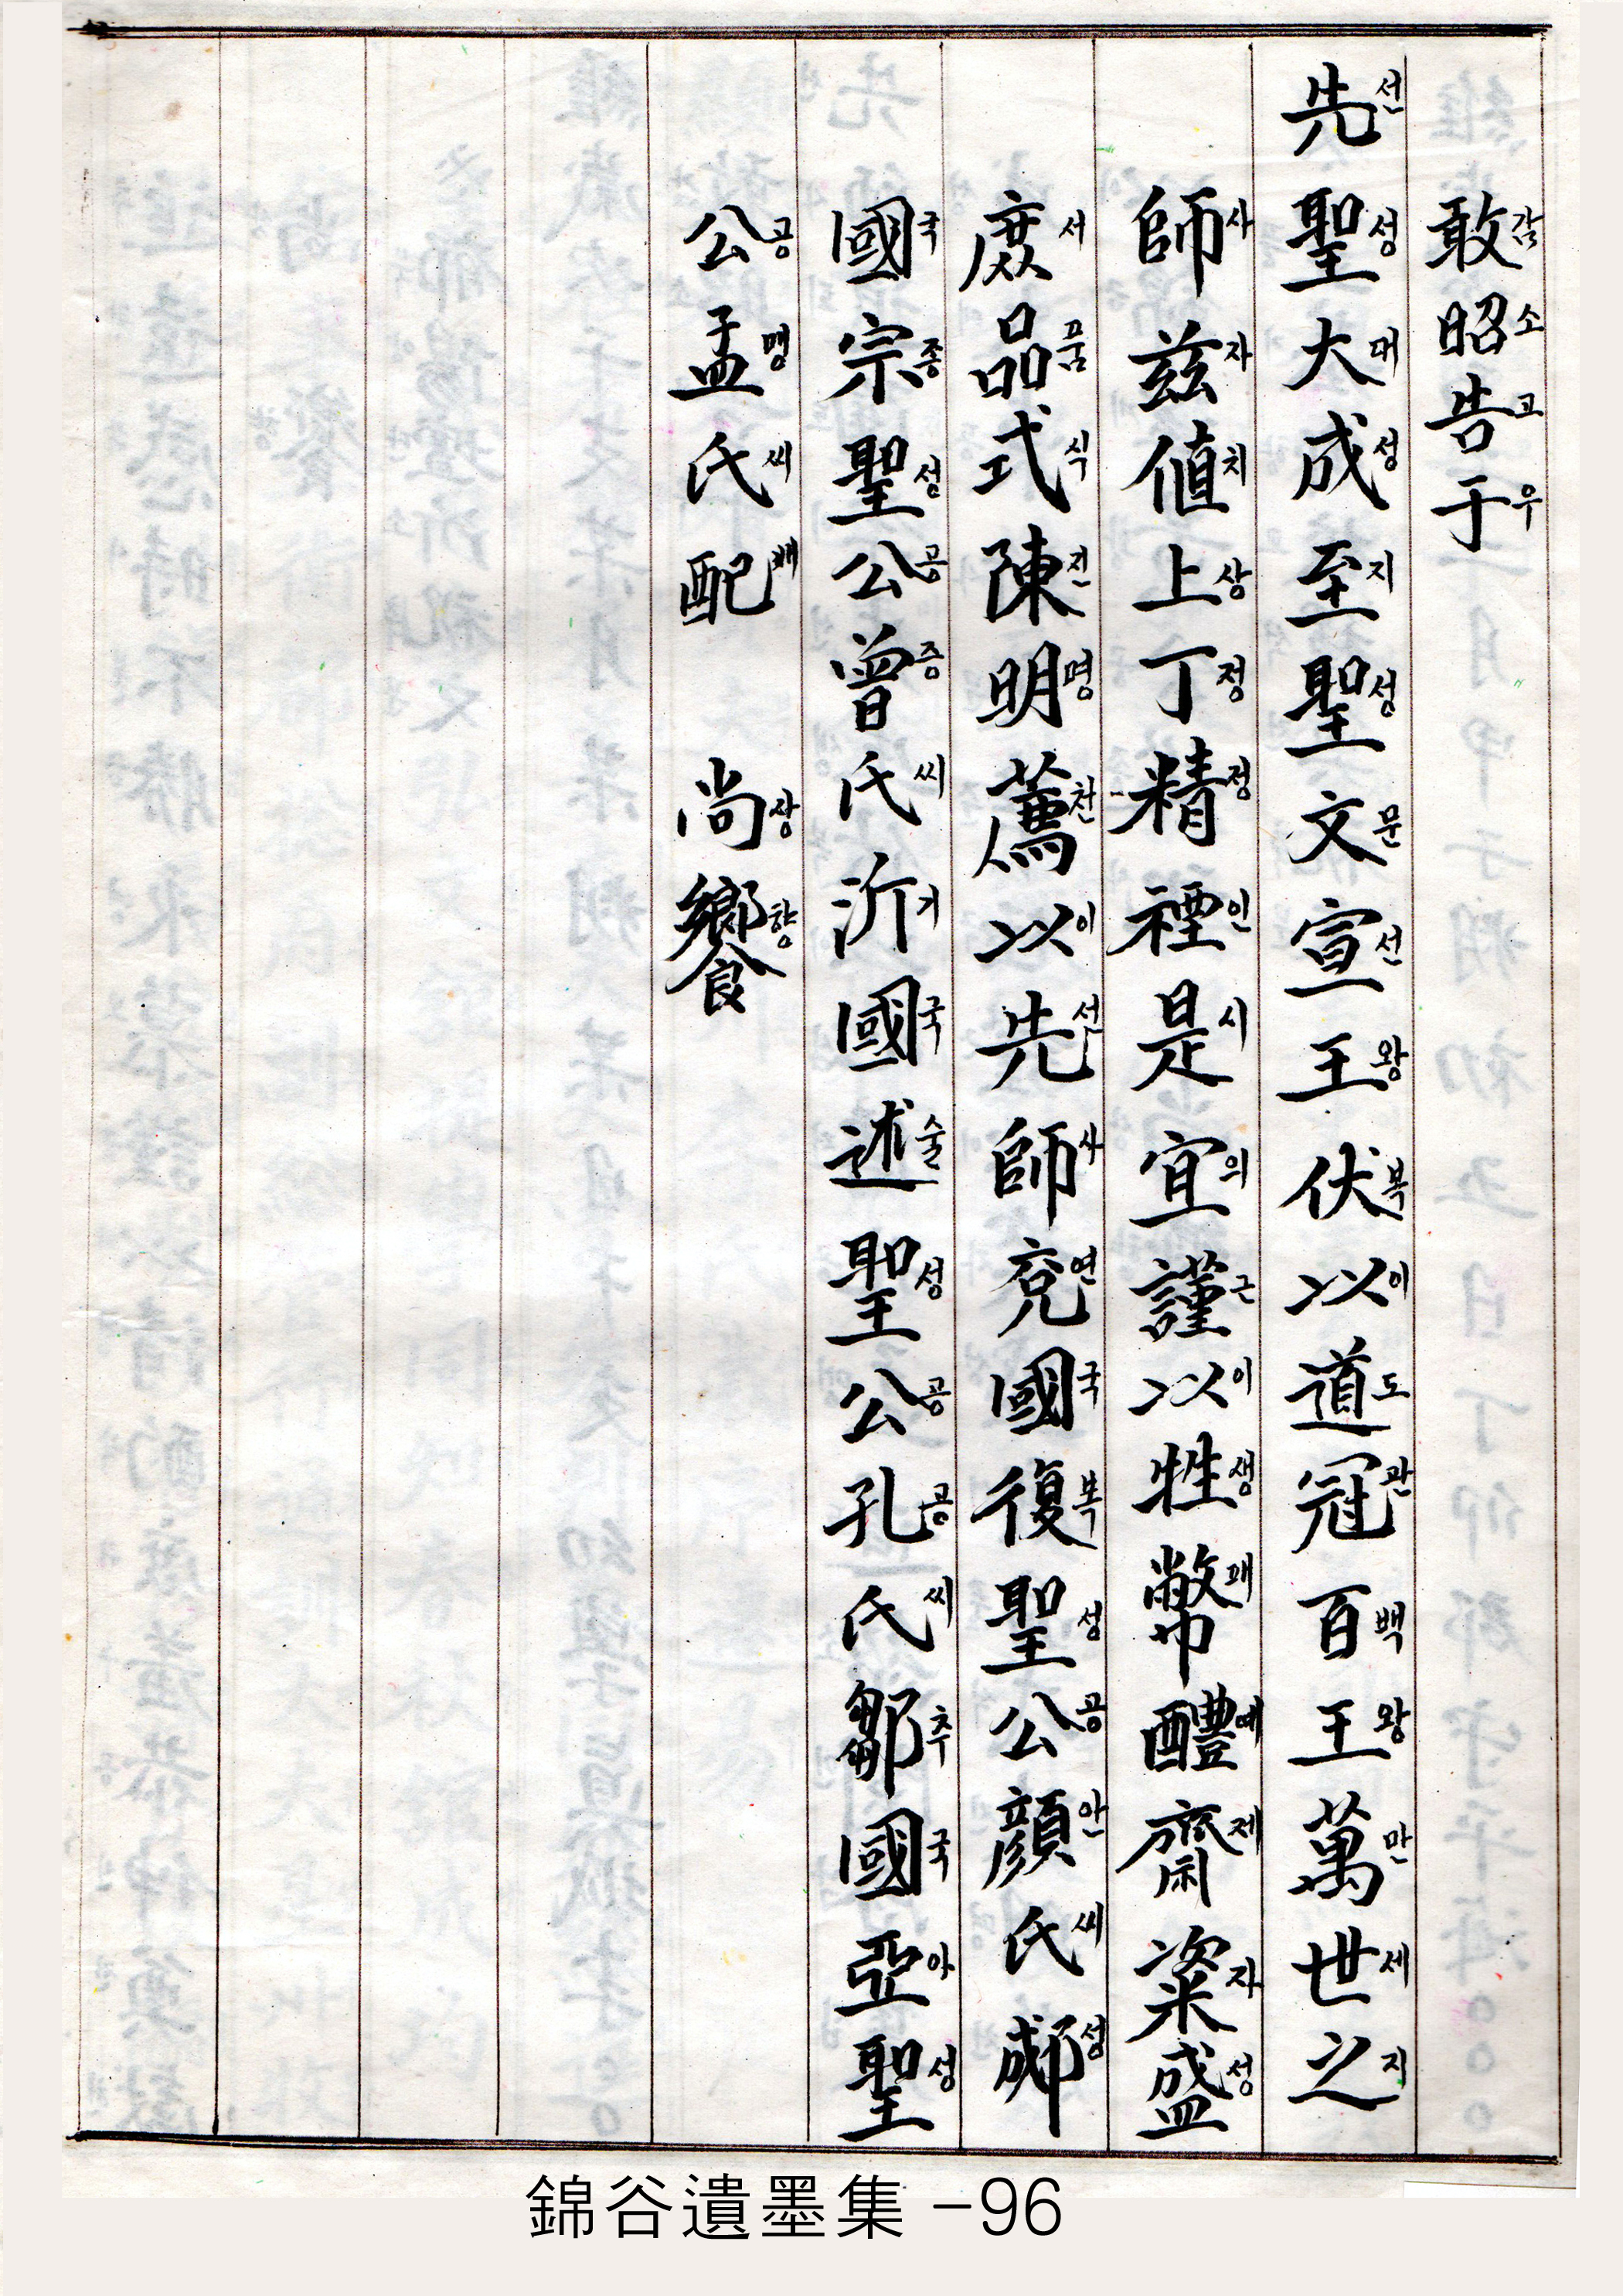 敢감昭소告고于우
先선聖성大대成성至지聖성文문宣선王왕伏복以이道도冠관百백王왕萬만世세之지
師사玆자値치上상丁정精정禋인是시宜의謹근以이牲생幣폐醴예齋제粢자盛성
庶서品품式식陳진明명薦천以이先선師사兗연國국復복聖성公공顔안氏씨郕성
國국宗종聖성公공曾증氏씨沂기國국述술聖성公공孔공氏씨鄒추國국亞아聖성
公공孟맹氏씨配배 尙상饗향
錦谷遺墨集 -96